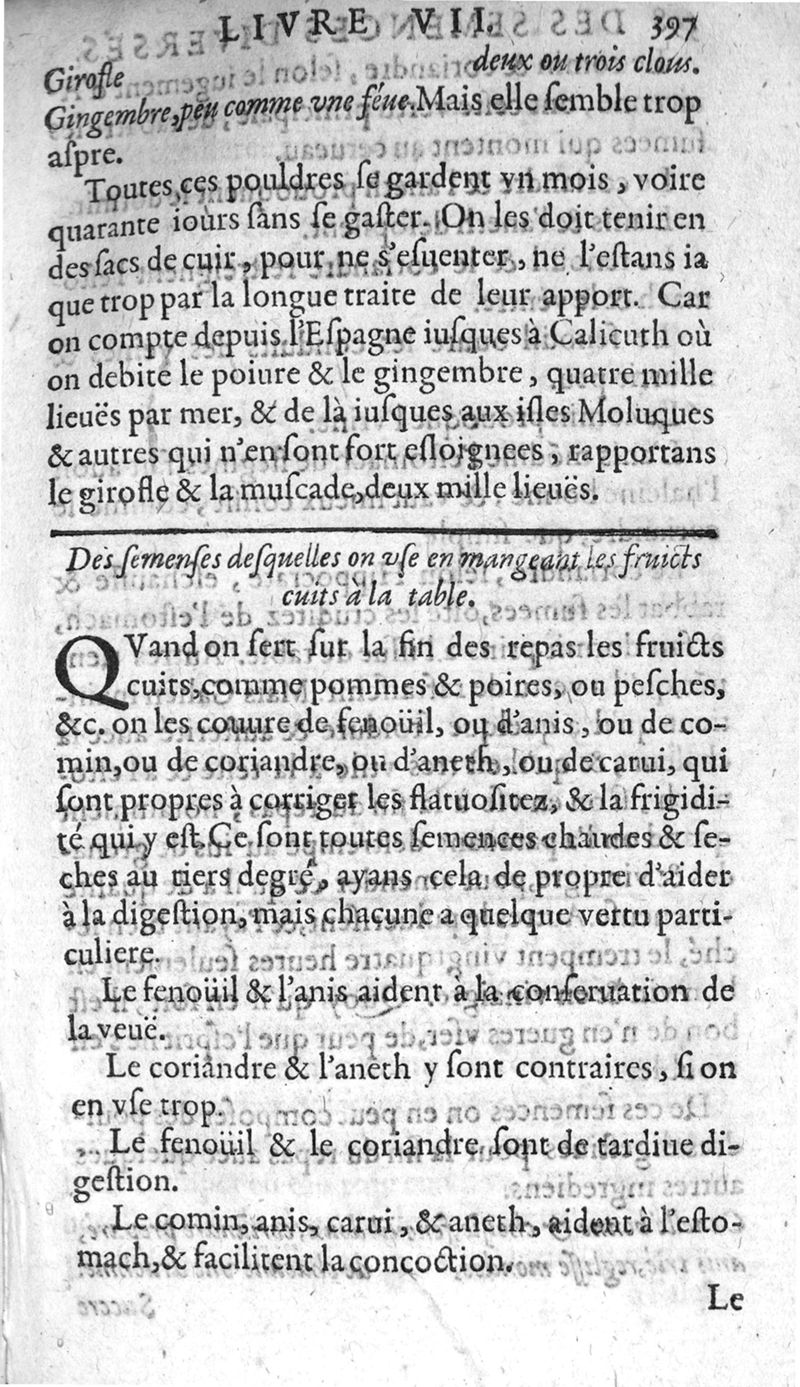 LIVRE VII. 397
Girofle deux ou trois clous.
Gingembre, peu comme vne féue. Mais elle ſemble trop
aſpre.
Toutes ces pouldres ſe gardent vn mois, voire
quarante iours ſans ſe gaſter. On les doit tenir en
des ſacs de cuir, pour ne s'eſuenter, ne l'eſtans ia
que trop par la longue traite de leur apport. Car
on compte depuis l'Eſpagne iuſques à Calicuth où
on debite le poiure & le gingembre, quatre mille
lieuës par mer, & de là iuſques aux iſles Moluques
& autres qui n'en ſont fort eſloignees, rapportans
le girofle & la muſcade, deux mille lieuës.
Des ſemenſes deſquelles on vſe en mangeant les fruicts
cuits à la table.
QVand on ſert ſur la fin des repas les fruicts
cuits, comme pommes & poires, ou peſches,
&c. on les couure de fenoüil, ou d'anis, ou de co-
min, ou de coriandre, ou d'aneth, ou de carui, qui
ſont propres à corriger les flatuoſitez, & la frigidi-
té qui y eſt. Ce ſont toutes ſemences chaudes & ſe-
ches au tiers degré, ayans cela de propre d'aider
à la digeſtion, mais chacune a quelque vertu parti-
culiere.
Le fenoüil & l'anis aident à la conſeruation de
la veuë.
Le coriandre & l'aneth y ſont contraires, ſi on
en vſe trop.
Le fenoüil & le coriandre ſont de tardiue di-
geſtion.
Le comin, anis, carui, & aneth, aident à l'eſto-
mach, & facilitent la concoction.
Le